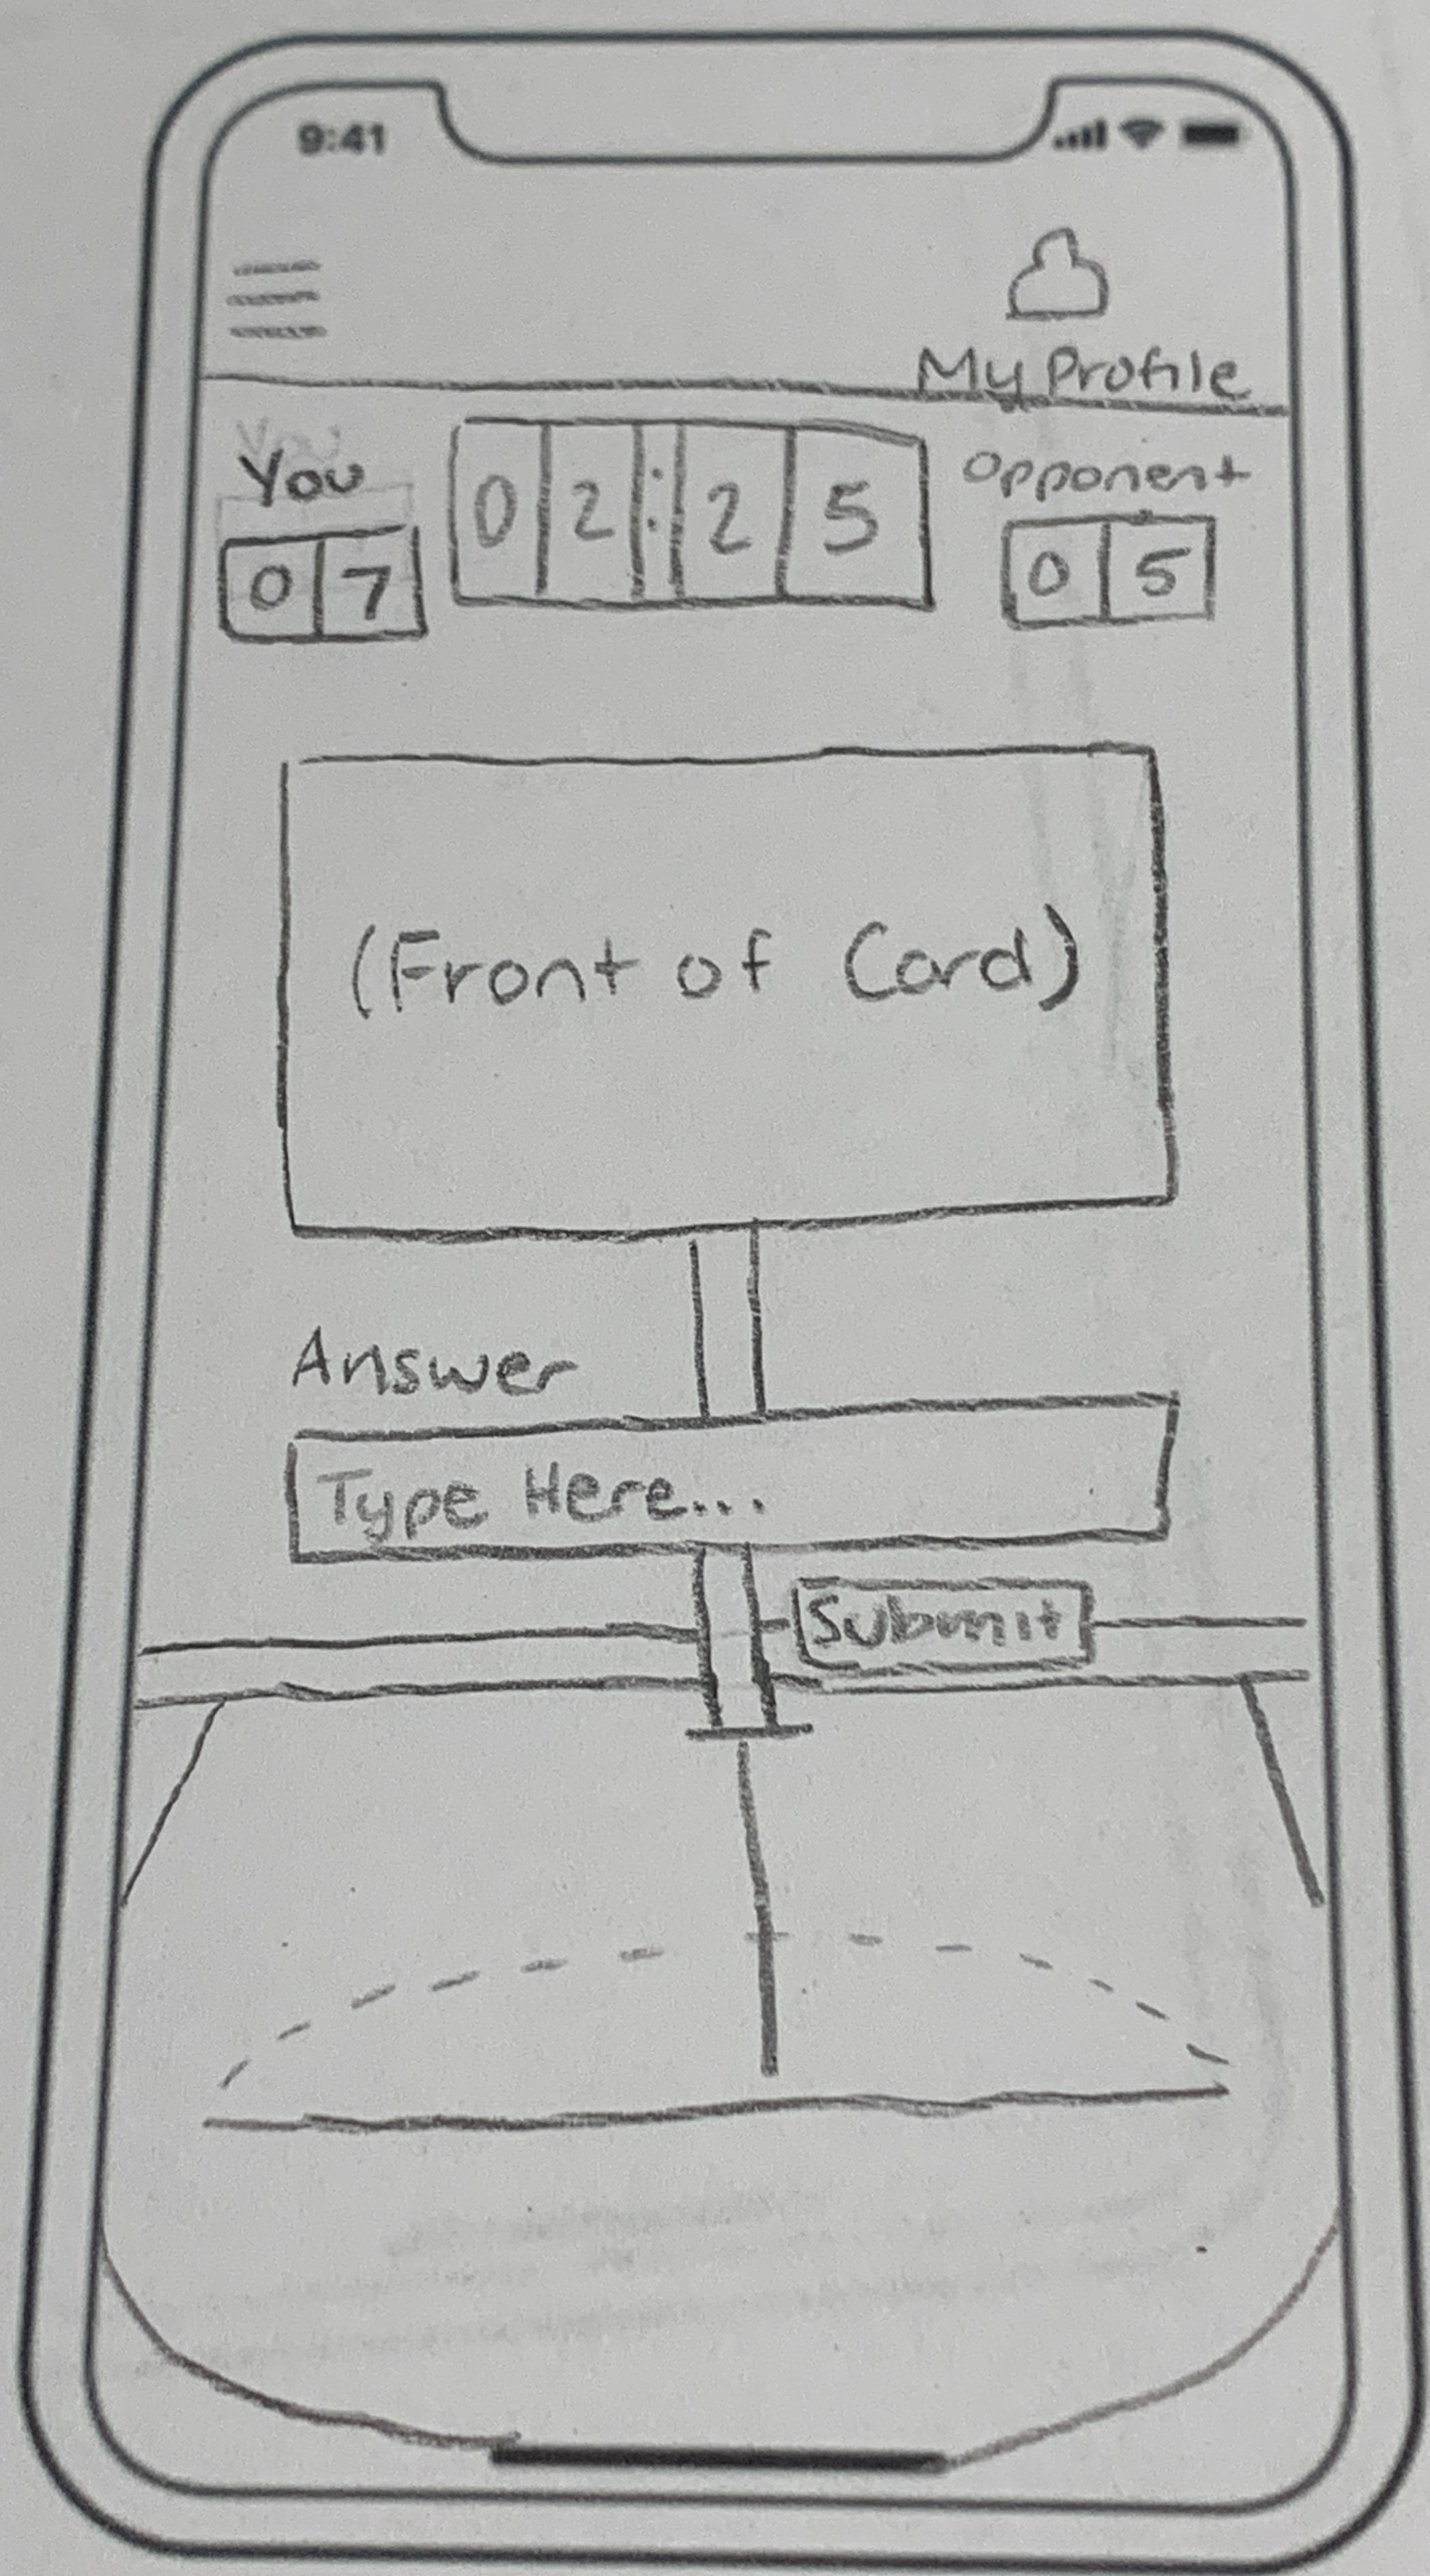 9:41
My Profile
You
02:25
Opponent
07
05
(Front of Card)
Answer
Type Here...
Submit